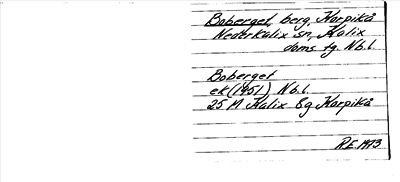 Boberget, berg, Karpikå
Nederkalix sn, Kalix
doms. tg. Nb. l.
Boberget
ek (1951) Nb. l.
25 M Kalix 8g Karpikå
R.E. 1973